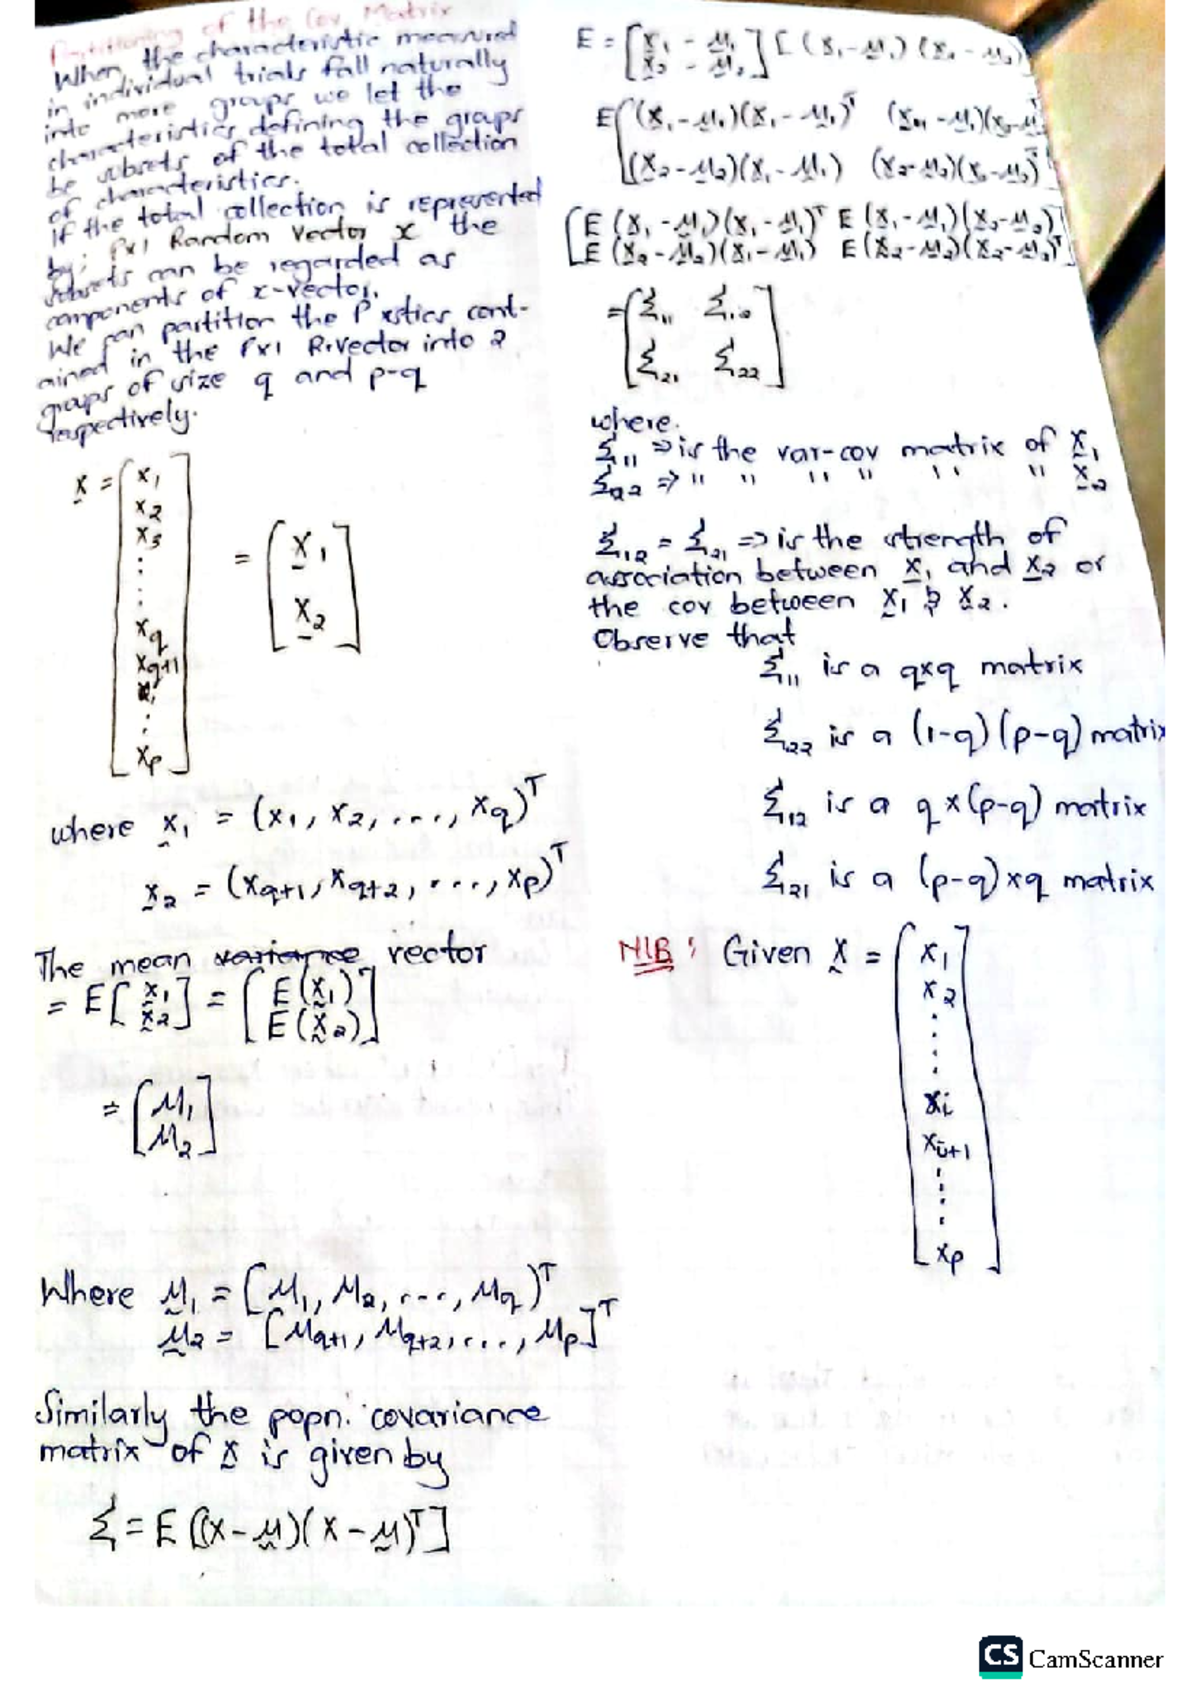 Partitioning of the Cov. Matrix
When the characteristic measured
in individual trials fall naturally
into more groups we let the
characteristics defining the groups
be subsets of the total collection
of characteristics.
if the total collection is represented
by; Px1 Random Vector x the
subsets can be regarded as
components of x-vector.
We can partition the P xstics cont-
ained in the Px1 R.vector into 2
groups of size q and p-q
respectively.
x = [x1
x2
x3
⋮
xq
xq+1
⋮
xp] = [x1
x2]
where x1 = (x1, x2, ..., xq)^T
x2 = (xq+1, xq+2, ..., xp)^T
The mean variance vector
= E[x1
x2] = [E(x1)
E(x2)]
= [μ1
μ2]
Where μ1 = [μ1, μ2, ..., μq)^T
μ2 = [μq+1, μq+2, ..., μp]^T
Similarly the popn. covariance
matrix of x is given by
Σ = E[(x-μ)(x-μ)^T]
E = [x1 - μ1
x2 - μ2] [(x1-μ1)(x2-μ2)
E[(x1-μ1)(x1-μ1)^T (x1-μ1)(x2-μ
(x2-μ2)(x1-μ1) (x2-μ2)(x2-μ2)^T
[E(x1-μ1)(x1-μ1)^T E(x1-μ1)(x2-μ2)
E(x2-μ2)(x1-μ1) E(x2-μ2)(x2-μ2)^T]
= [Σ11 Σ12
Σ21 Σ22]
where.
Σ11 => is the var-cov matrix of x1
Σ22 => " " " " " " x2
Σ12 = Σ21 => is the strength of
association between x1 and x2 or
the cov between x1 & x2.
Observe that
Σ11 is a qxq matrix
Σ22 is a (1-q)(p-q) matrix
Σ12 is a q x(p-q) matrix
Σ21 is a (p-q)xq matrix
N/B: Given x = [x1
x2
⋮
xi
xi+1
⋮
xp]
CS CamScanner